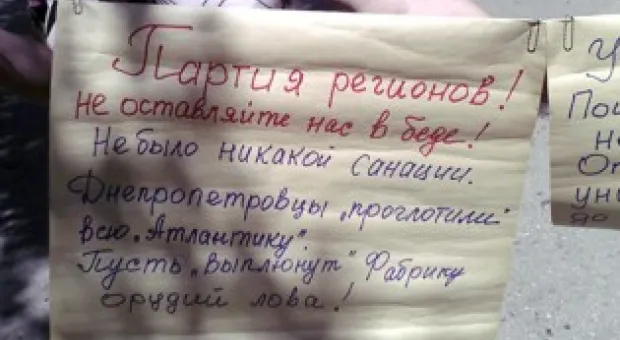 Партия регионов!
не оставляйте нас в беде!
Не было никакой санации.
Днепропетровцы „проглотили"
всю „Атлантику".
Пусть „выплюнут" Фабрику
орудий лова!
У
По
н
Оп
уни
до